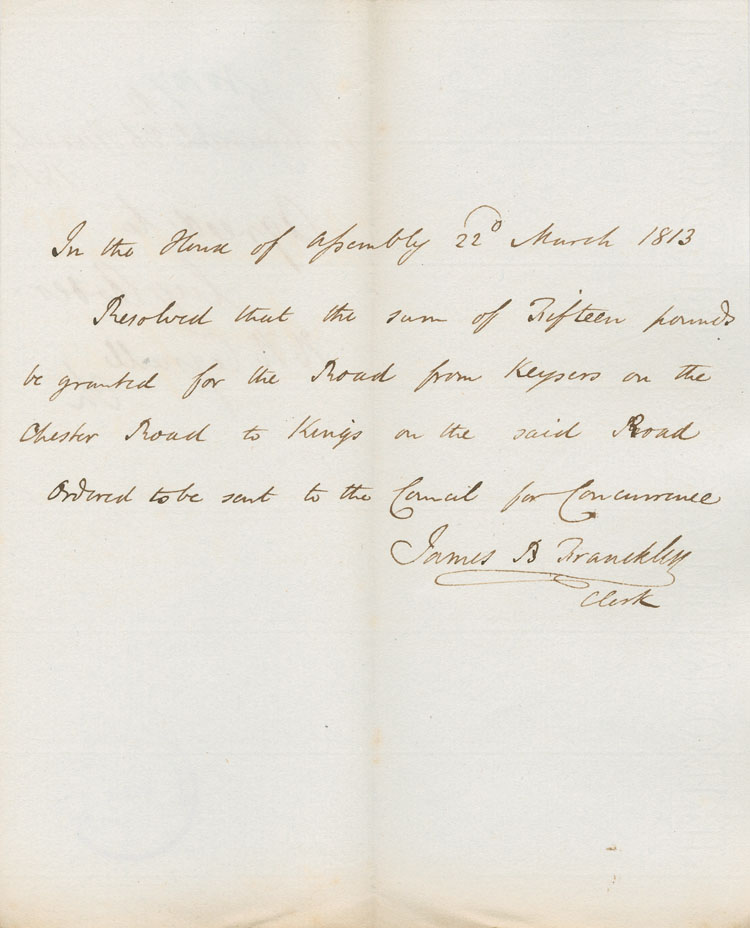 In the House of Assembly 22d March 1813
Resolved that the sum of Fifteen pounds
be granted for the Road from Keysers on the
Chester Road to Kings on the said Road
Ordered to be sent to the Council for Concurrence
James B Franckliy
Clerk